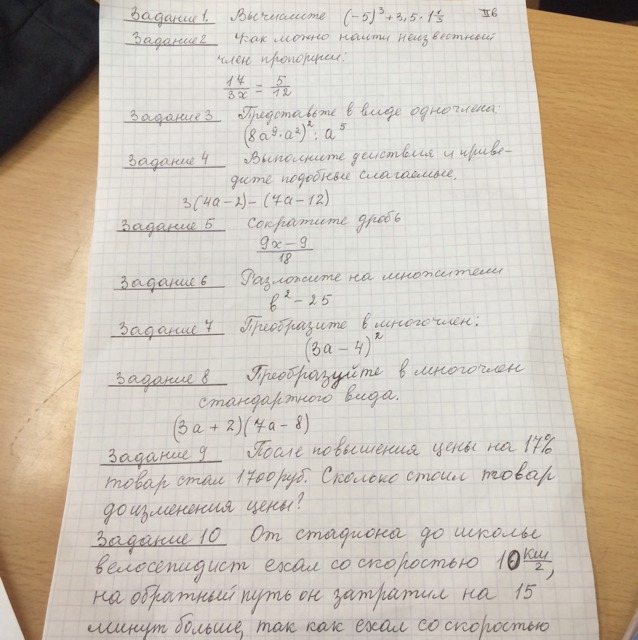 Задание 1. Вычислите (-5)³+3,5·1 1/3 IIв
Задание 2 Как можно найти неизвестный
член пропорции:
17/3x = 5/12
Задание 3 Представьте в виде одночлена:
(8a⁹·a²)² : a⁵
Задание 4 Выполните действия и приве-
дите подобные слагаемые.
3(4a-2)-(7a-12)
Задание 5 Сократите дробь
9x-9/18
Задание 6 Разложите на множители
b²-25
Задание 7 Преобразите в многочлен:
(3a-4)²
Задание 8 Преобразуйте в многочлен
стандартного вида.
(3a+2)(7a-8)
Задание 9 После повышения цены на 17%
товар стал 1700 руб. Сколько стоил товар
до изменения цены?
Задание 10 От стадиона до школы
велосепидист ехал со скоростью 10 км/г,
на обратный путь он затратил на 15
минут больше, так как ехал со скоростью